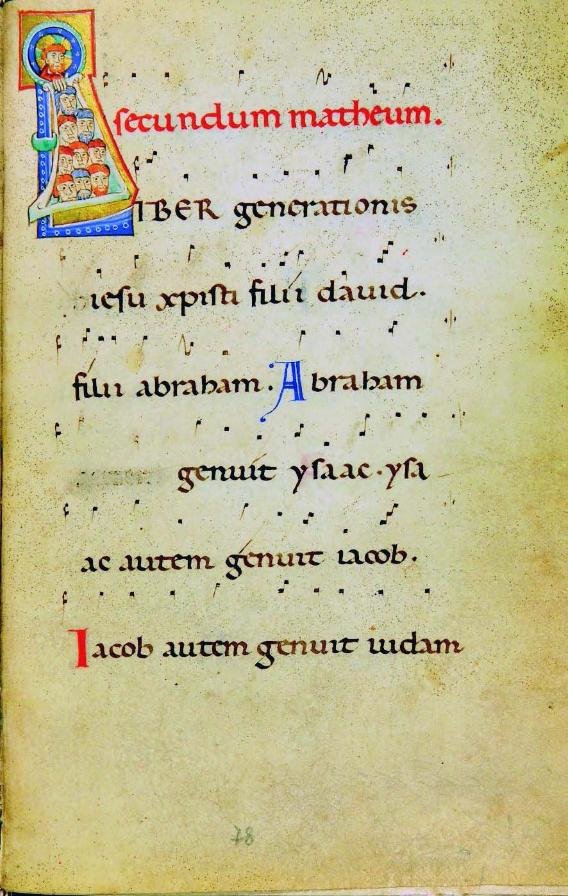 secundum matheum.
LIBER generationis
iesu xpisti filii dauid.
filii abraham. Abraham
genuit ysaac. ysa
ac autem genuit iacob.
Iacob autem genuit iudam
78